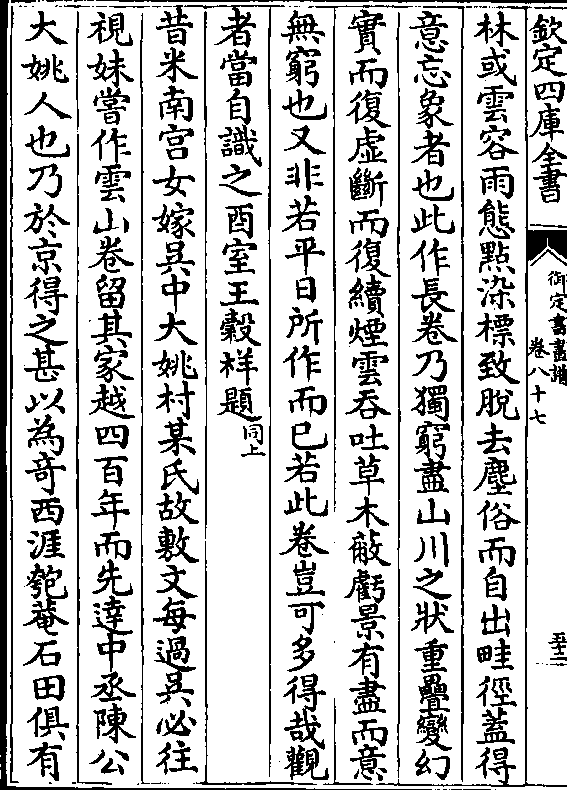 欽定四庫全書
御定書畫譜
卷八十七
五十二
林或雲容雨態點染標致脫去塵俗而自出畦徑蓋得
意忘象者也此作長卷乃獨窮盡山川之狀重疊變幻
實而復虛斷而復續煙雲吞吐草木蔽虧景有盡而意
無窮也又非若平日所作而已若此卷豈可多得哉觀
者當自識之酉室王穀祥題同上
昔米南宫女嫁吳中大姚村某氏故敷文每過吳必往
視妹嘗作雲山卷留其家越四百年而先達中丞陳公
大姚人也乃於京得之甚以為奇西涯匏菴石田俱有